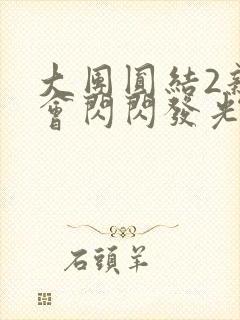 大團圓結2
會閃閃發光
石頭羊